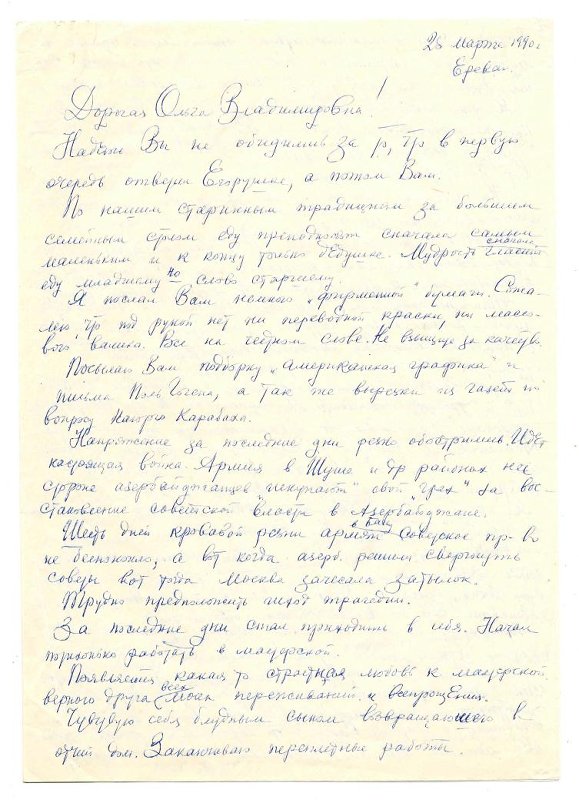 28 Марта 1990 г
Ереван.
Дорогая Ольга Владимировна!
Надеюсь Вы не обиделись за то, что в первую
очередь ответил Егорушке, а потом Вам.
По нашим старинным традициям за большим
семейным столом еду преподносят сначала самым
маленьким и к концу только дедушке. Мудрость гласит
сначала
еду младшему но слово старшему.
Я послал Вам немного „фирменной" бумаги. Сожа-
лею, что под рукой нет ни переводной краски, ни массо-
вого валика. Все на честном слове. Не взыщите за качество.
Посылаю Вам подборку „Американская графика" и
письма Поль Гогена, а так же вырезки из газеты по
вопросу Нагорного Карабаха.
Напряжение за последние дни резко обострились. Идет
настоящая война. Армия в Шуше и др районах на
стороне азербайджанцев „искупают" свой „грех" за вос-
становление советской власти в Азербайджане.
Шесть дней кровавой резни армян в Баку Советское пр-во
не беспокоило, а вот когда азерб. решили свергнуть
советы вот тогда Москва зачесала затылок.
Трудно предположить исход трагедии.
За последние дни стал приходить в себя. Начал
потихоньку работать в мастерской.
Появилась какая то страстная любовь к мастерской
верного друга всех моих переживаний и всепрощения.
Чувствую себя блудным сыном возвращающегося в
отчий дом. Заканчиваю переплетные работы.